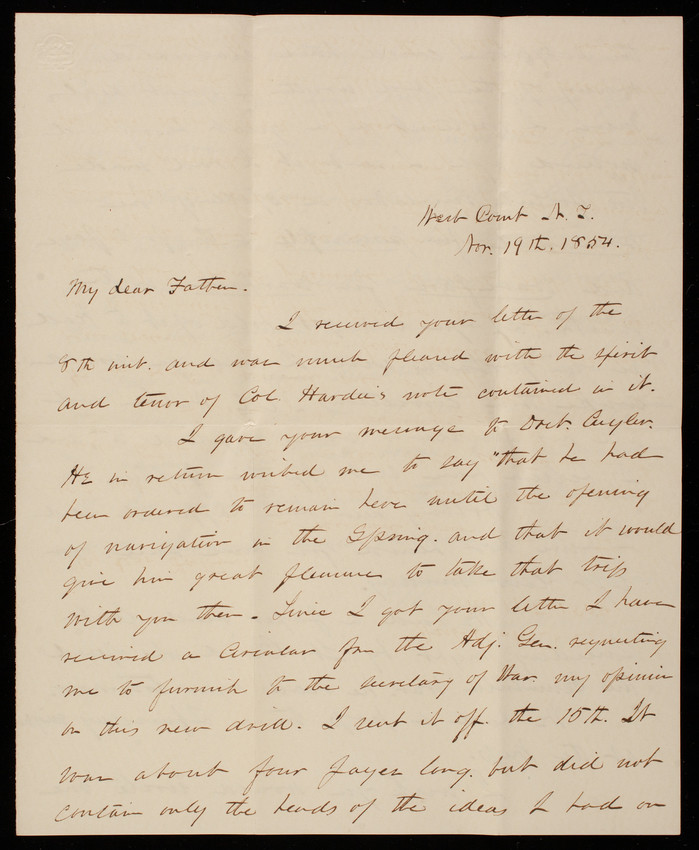 West Point N. Y.
Nov. 19th. 1854.
My dear Father.
I received your letter of the
8th inst. and was much pleased with the spirit
and tenor of Col Hardee's note contained in it.
I gave your message to Doct. Cuyler.
He in return wished me to say "that he had
been ordered to remain here until the opening
of navigation in the Spring. and that it would
give him great pleasure to take that trip
with you then. Since I got your letter I have
received a Circular from the Adj. Gen. requesting
me to furnish to the secretary of War. my opinion
on this new drill. I sent it off. the 15th. It
was about four pages long. but did not
contain only the heads of the ideas I had on